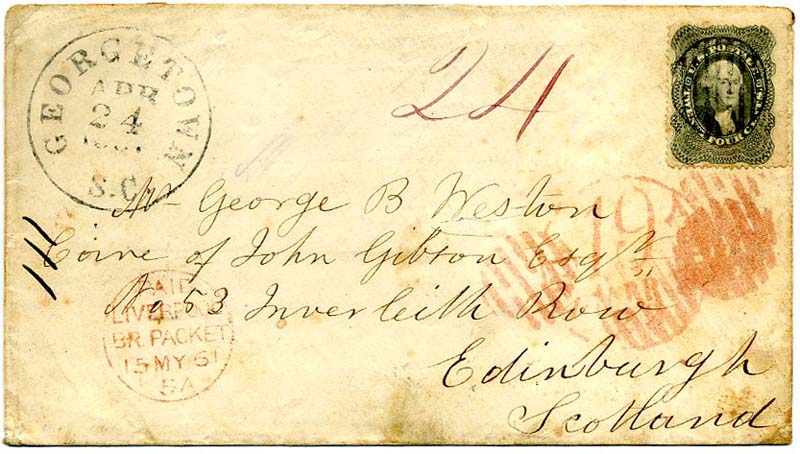 GEORGETOWN
APR
24
S.C
24
U.S. POSTAGE
TWENTY FOUR CENTS
Mr George B Weston
Care of John Gibson Esqr
19
No 53 Inverleith Row
PAID
LIVERPOOL
BR. PACKET
15 MY 61
5A
Edinburgh
Scotland